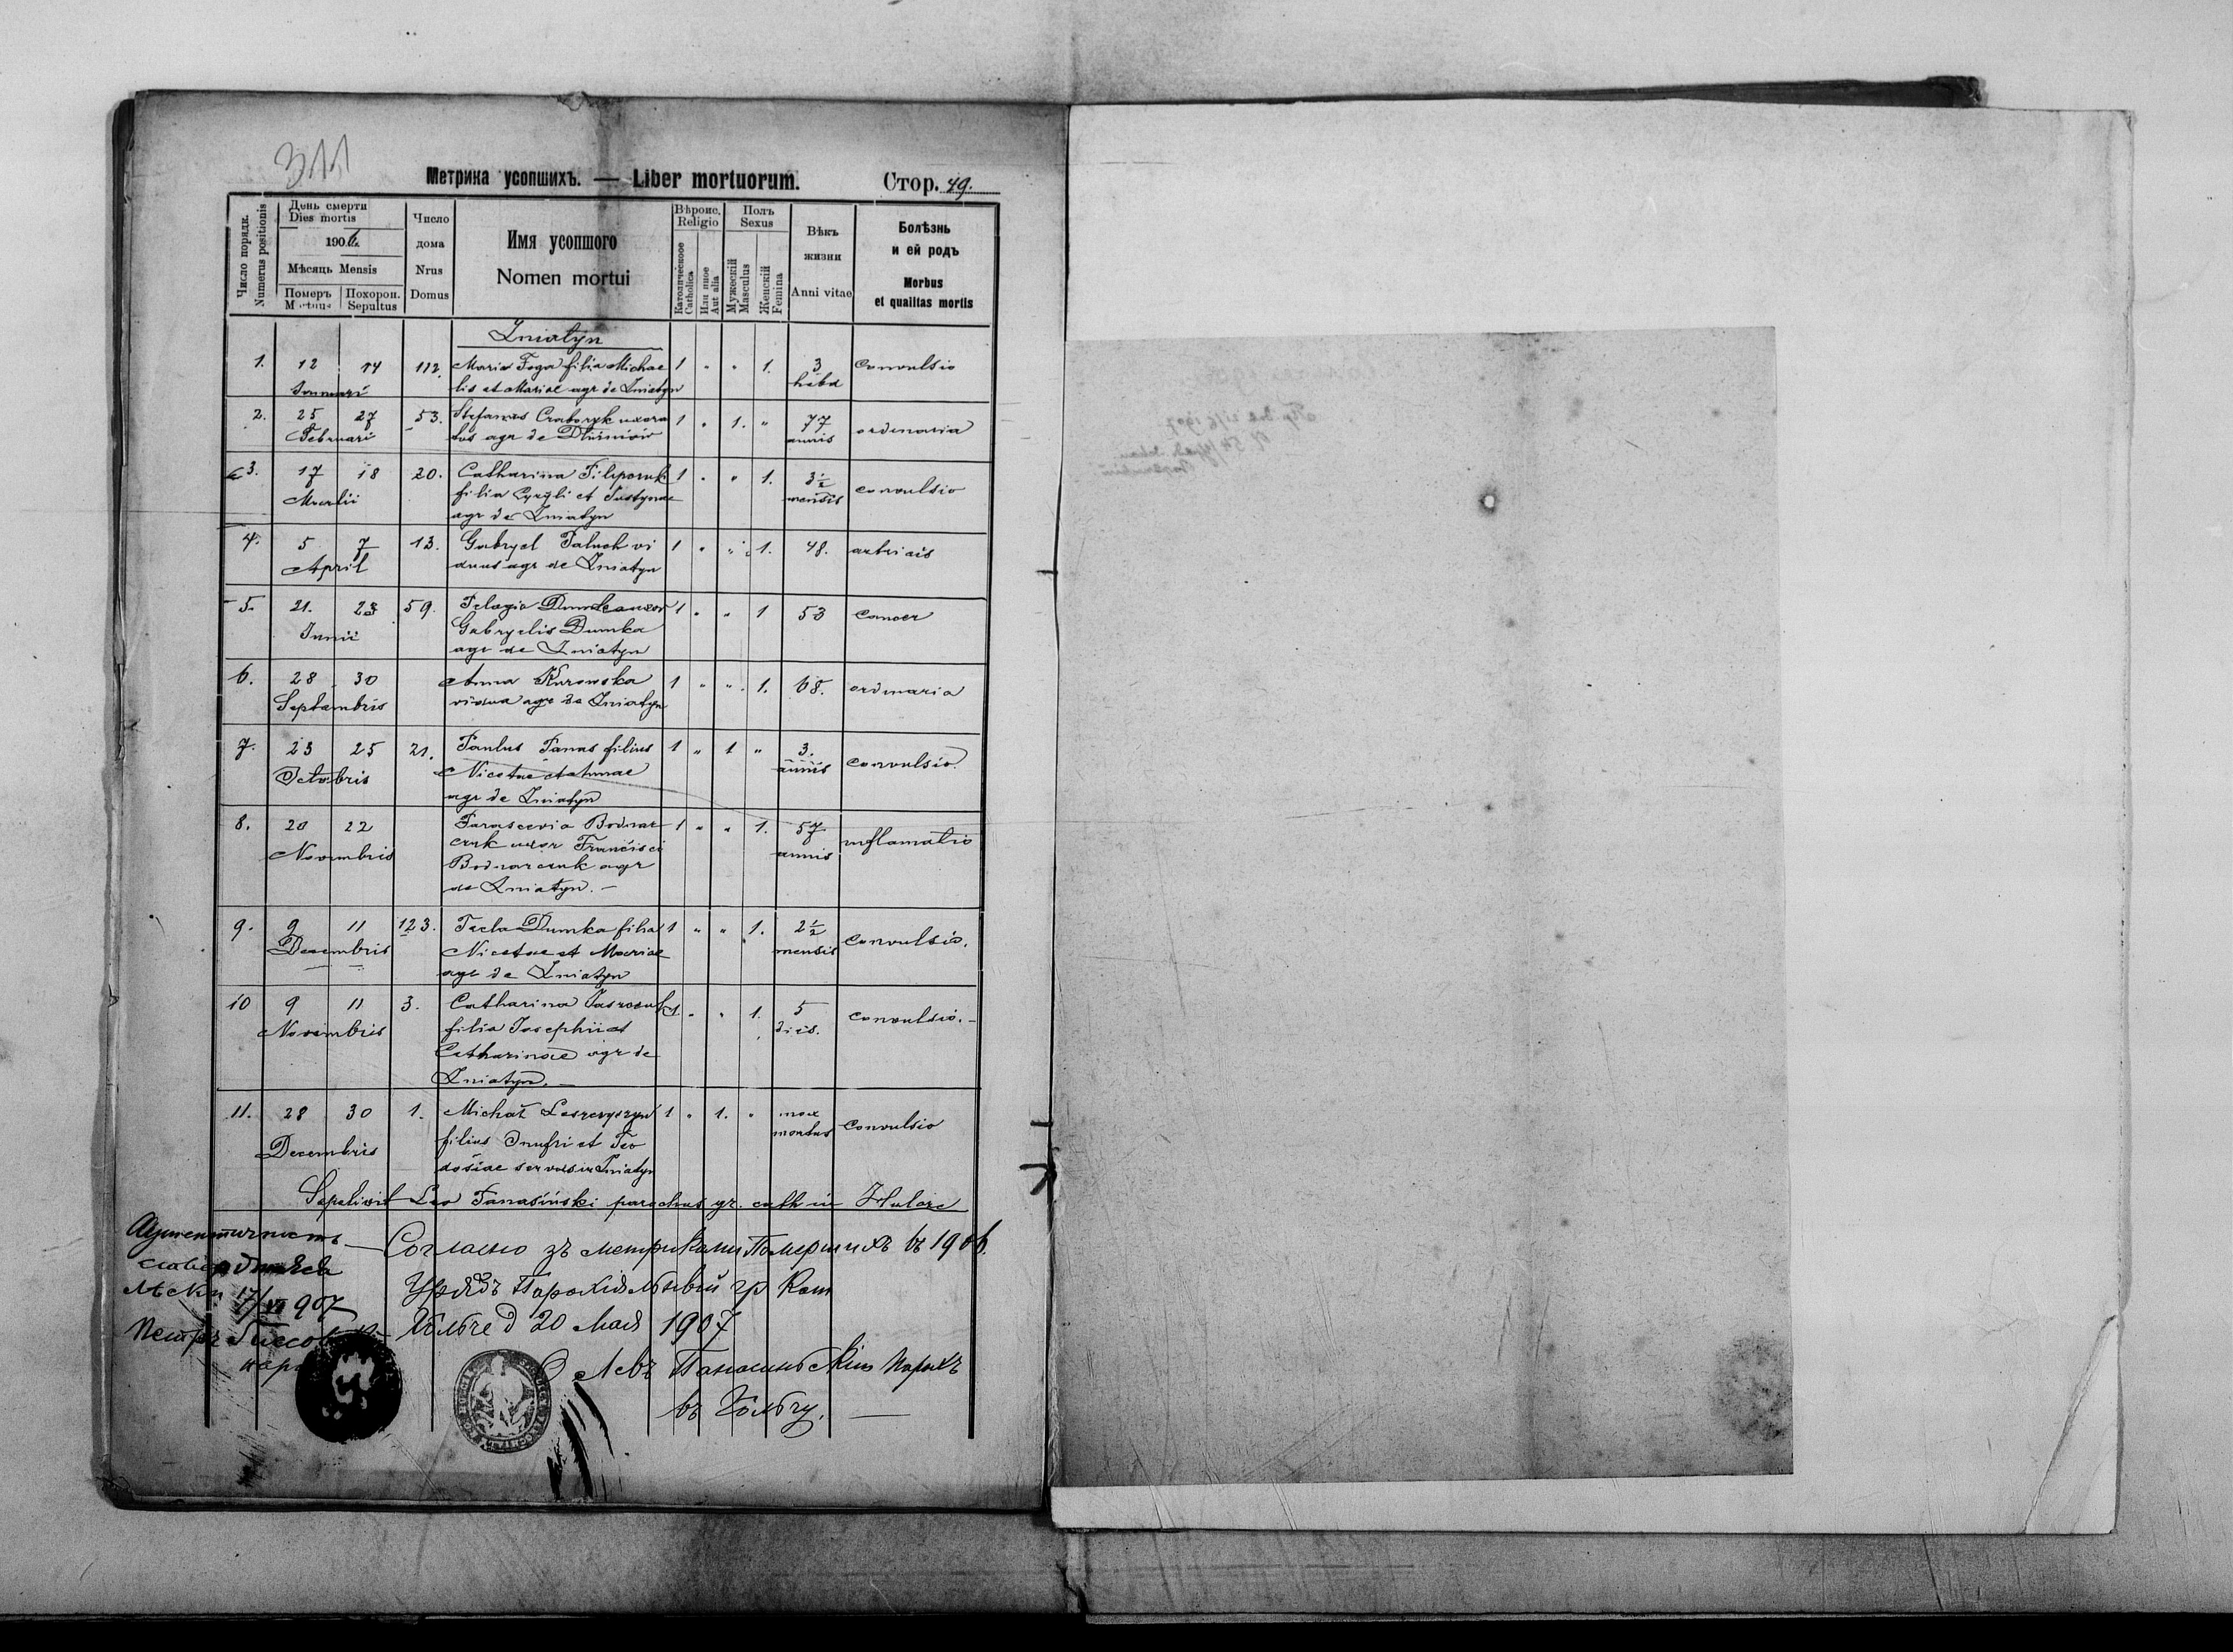 311
Метрика усопшихъ. — Liber mortuorum. Стор. 49.
Число порядк. Numerus positionis
День смерти
Dies mortis
1906
Мѣсяць Mensis
Померъ Mortuus
Похорон. Sepultus
Число дома Nrus Domus
Имя усопшого
Nomen mortui
Вѣроис. Religio
Католическое Catholica
Или иное Aut alia
Полъ Sexus
Мужескій Masculus
Женскій Femina
Вѣкъ жизни Anni vitae
Болѣзнь и ей родъ
Morbus et qualitas mortis
Zniatyn
1. 12 14 112. Maria Foga filia Michae 1 " " 1. 3 convulsio
Januari lis et Mariae agr de Zniatyn hebd
2. 25 27 53. Stefanus Craboryk uxora 1 " 1. " 77 ordinaria
Februari tus agr de Dłużniów annis
3. 17 18 20. Catharina Fileporuk 1 " " 1. 3½ convulsio
Martii filia Cyryli et Justynae mensis
agr de Zniatyn
4. 5 7 13. Gabryel Paluch vi 1 " " 1. 48.
April duus agr de Zniatyn
5. 21. 23 59. Pelagia Dumka uxor 1 " " 1 53 cancer
Junii Gabryelis Dumka
agr de Zniatyn
6. 28 30 Anna Kurowska 1 " " 1. 68. ordinaria
Septembris vidua agr de Zniatyn
7. 23 25 21. Paulus Panas filius 1 " 1 " 3. convulsio.
Octobris Nicetae et annis
agr de Zniatyn
8. 20 22 Parascevia Bodnar 1 " " 1. 57 inflamatio
Novembris czuk uxor Francisci annis
Bodnarczuk agr
de Zniatyn. —
9. 9 11 123. Tecla Dumka filia 1 " " 1. 2½ convulsio.
Decembris Nicetae et Mariae mensis
agr de Zniatyn
10 9 11 3. Catharina 1 " " 1. 5 convulsio. —
Novembris filia Josephi et dies.
Catharinae agr de
Zniatyn. —
11. 28 30 1. Michał Leszczyszyn 1 " 1. " mox convulsio
Decembris filius Onufri et Teo mortus
dosiae servus in Zniatyn
Sepelivit Leo Panasiński parochus gr. cath in Hulcze
Аутентичность Согласно зъ метриками Помершихъ въ 1906.
17/VI 907 Урядъ Парохіяльный гр Кат
Петръ Гольче д 20 Мая 1907
О Левъ Панасиньскій парохъ
въ Гольчу. —